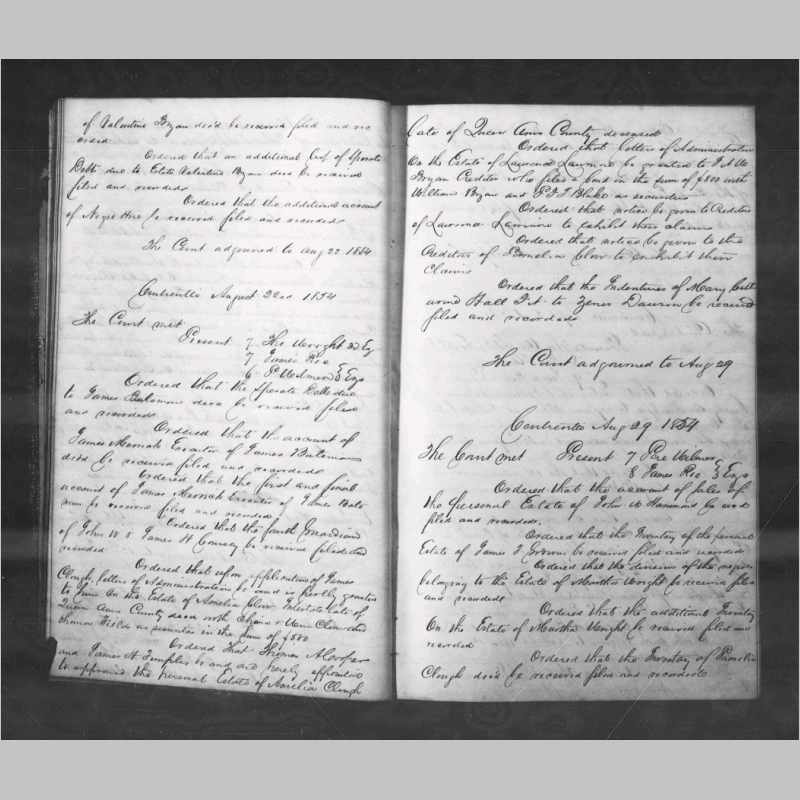 of Valentine Bryan decd be received filed and re
corded
Ordered that an additional List of Sperate
Debts due to Estate Valentine Bryan decd be received
filed and recorded
Ordered that the additional account
of Negro Hire be received filed and recorded
The Court adjourned to Aug 22 1854
Centreville August 22nd 1854
The Court met
Present 7 Tho Wright 3d Esq
7 James Roe
6 P Wilmer } Esqs
Ordered that the Sperate Debts due
to James Bateman decd be received filed
and recorded
Ordered that the account of
James Merrick Executor of James Bateman
decd be received filed and recorded
Ordered that the first and final
account of James Merrick Executor of James Bate
man be received filed and recorded
Ordered that the fourth Guardian
of John W & James H be received filed and
recorded
Ordered that upon application of James
Clough, letters of Administration be and is hereby granted
to him on the Estate of Amelia Clow Intestate late of
Queen Anns County decd with and
Thomas as securities in the sum of $500
Ordered that Thomas A Cooper
and James H Temples be and are hereby appointed
to appraise the personal Estate of Amelia Clough
late of Queen Anns County deceased
Ordered that letters of Administration
On the Estate of be granted to I A W
Bryan Creditor who files a bond in the sum of $800 with
William Bryan and P J T Blake as securities
Ordered that notice be given to Creditors
of to exhibit their claims
Ordered that notice be given to the
Creditors of Clow to exhibit their
Claims
Ordered that the Indentures of Mary
Hall to Dawson be received
filed and recorded
The Court adjourned to Aug 29
Centreville Aug 29 1854
The Court met Present 7 Pere Wilmer
8 James Roe } Esqs
Ordered that the account of Sales of
the personal Estate of John W Hammond be recd
filed and recorded
Ordered that the Inventory of the personal
Estate of James T Brown be received filed and recorded
Ordered that the division of the negroes
belonging to the Estate of Martha Wright be received filed
and recorded
Ordered that the additional Inventory
On the Estate of Martha Wright be received filed and
recorded
Ordered that the Inventory of
Clough decd be received filed and recorded